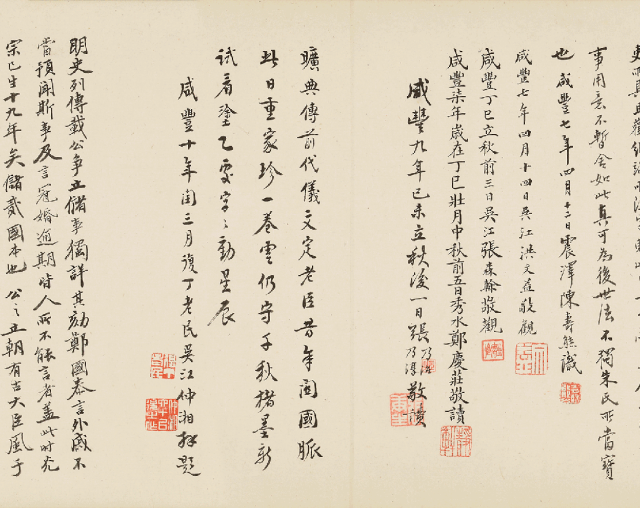 事用意不暫舍如此真可為後世法不獨朱氏所當寶
也咸豐七年四月十二日震澤陳壽熊識
咸豐七年四月十四日吳江洪文益敬觀
咸豐丁巳立秋前三日吳江張森翰敬觀
咸豐柒年歲在丁巳壯月中秋前五日秀水鄭慶莊敬讀
咸豐九年己未立秋後一日張敬讀
曠典傳前代儀文定老臣昔年關國脈
此日重家珍一卷雲仍守千秋楮墨新
試看塗乙處字字動星辰
咸豐十年閏三月復丁老民吳江仲湘題
明史列傳載公爭立儲事獨詳其劾鄭國泰言外戚不
當預聞斯事及言冠婚逾期皆人所不能言者蓋此時光
宗已生十九年矣儲貳國本也公之立朝有古大臣風于